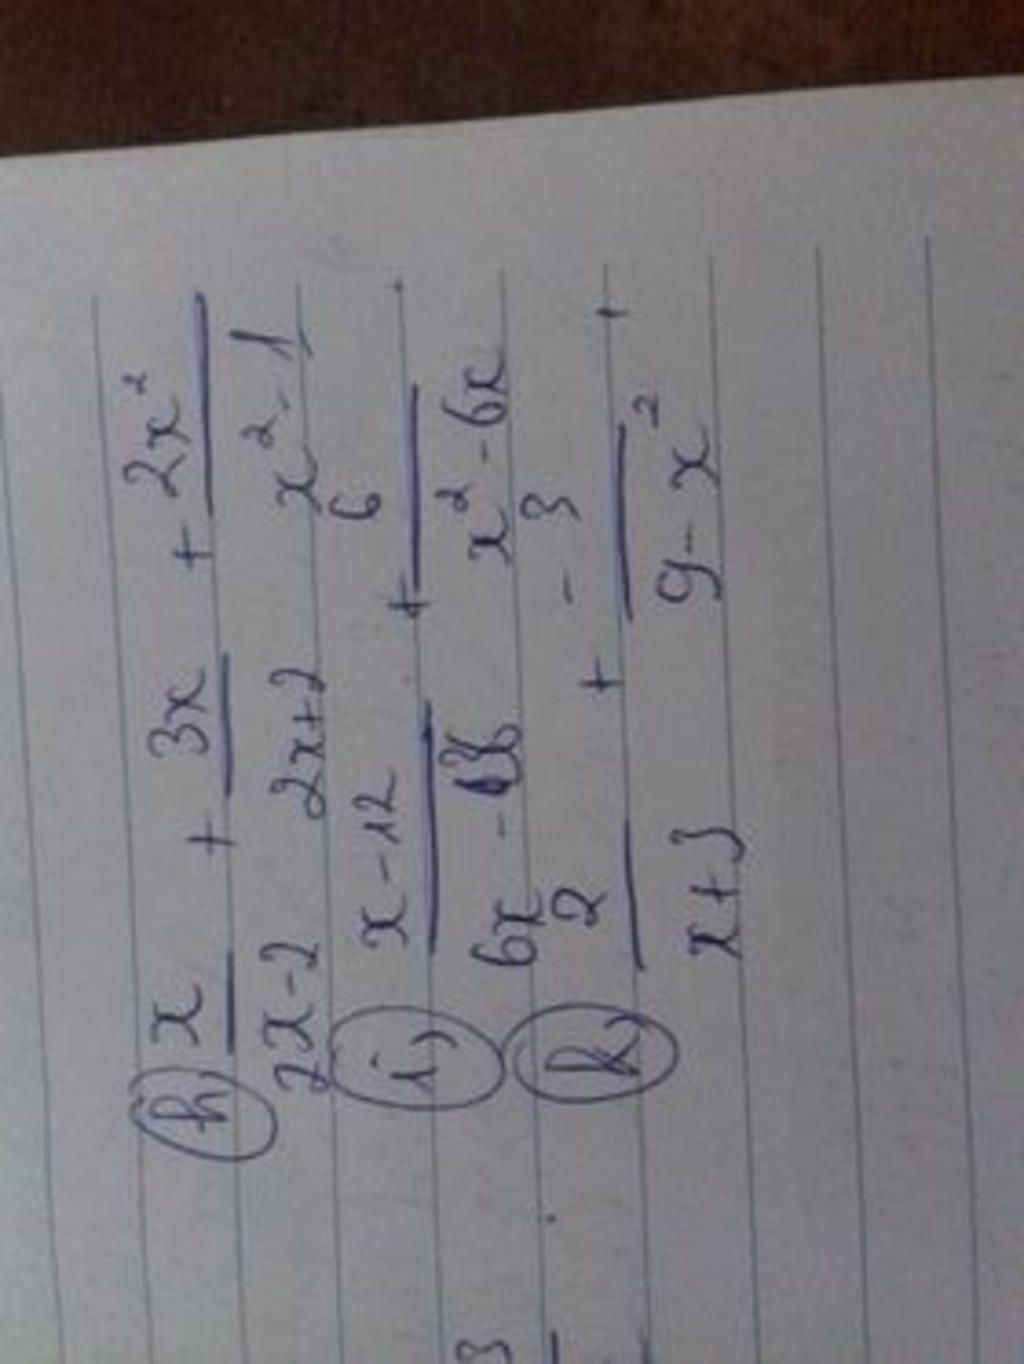 h, x/2x-2 + 3x/2x+2 + 2x²/x²-1
i, x-12/6x-36 + 6/x²-6x
k, 2/x+3 + -3/9-x²
3